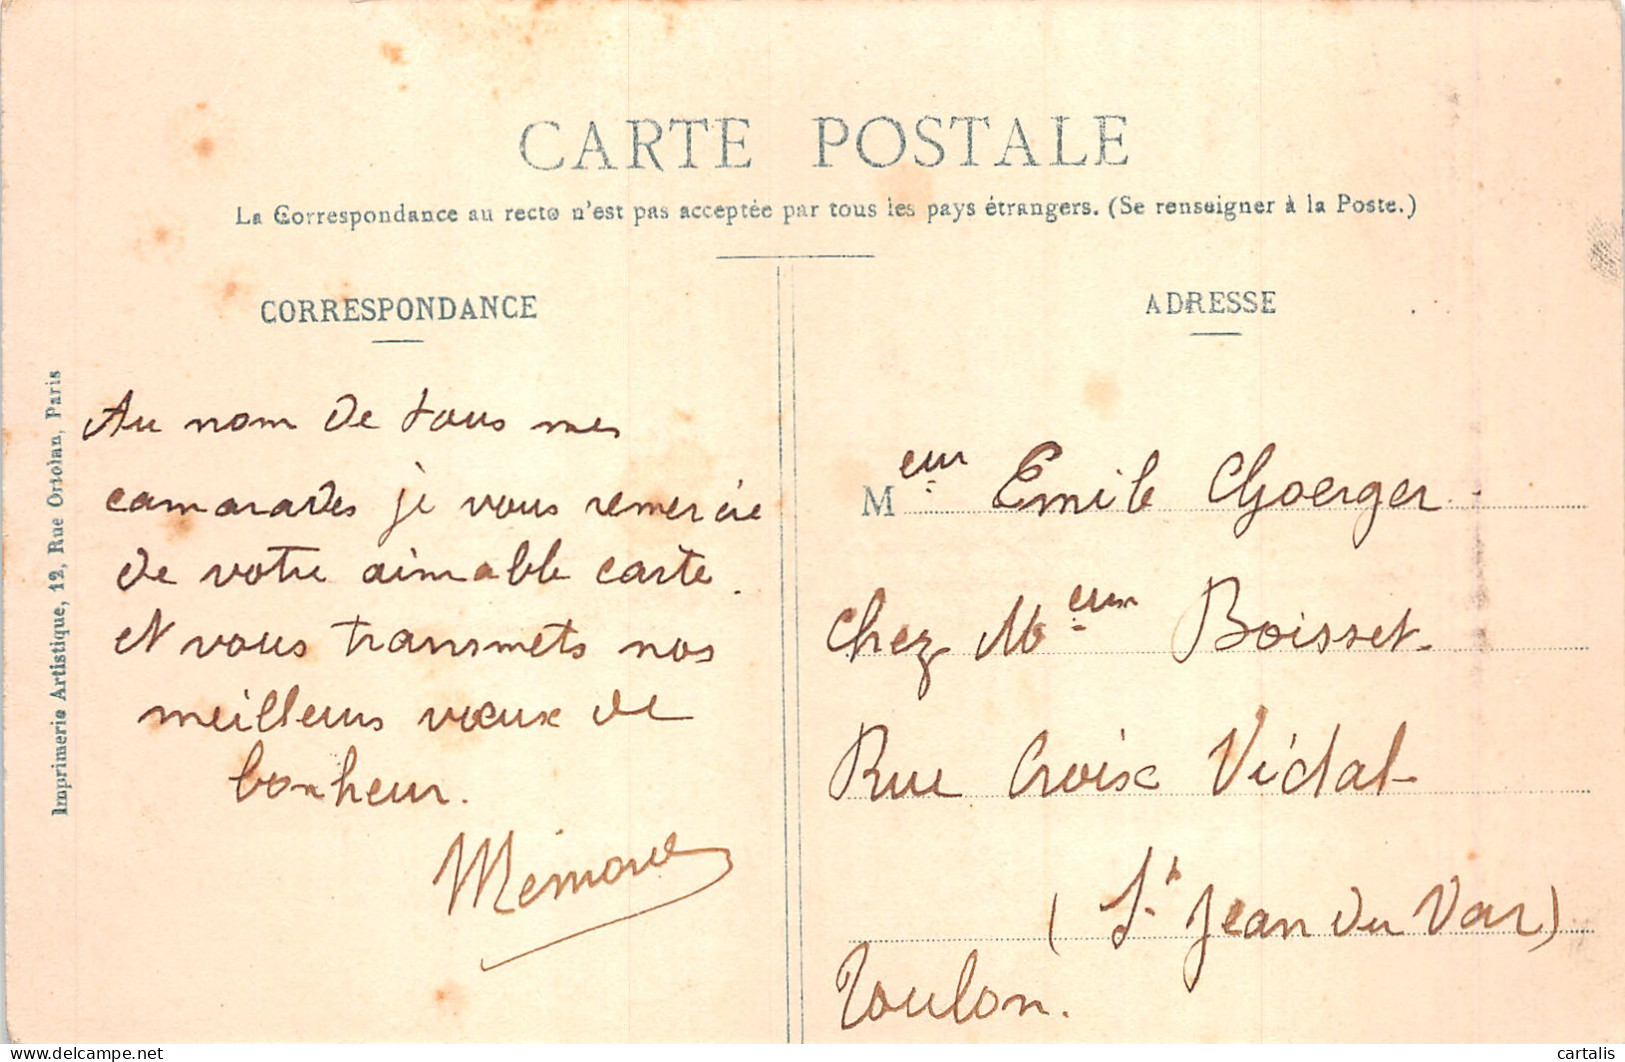 CARTE POSTALE
La Correspondance au recto n'est pas acceptée par tous les pays étrangers. (Se renseigner à la Poste.)
CORRESPONDANCE
Au nom de tous mes
camarades je vous remercie
de votre aimable carte.
et vous transmets nos
meilleurs vœux de
bonheur.
Imprimerie Artistique, 12, Rue Ortolan, Paris
ADRESSE
Meur Emile
chez Meur Boisset.
Rue Croix Vidal
(St Jean du Var)
Toulon.
delcampe.net
cartalis